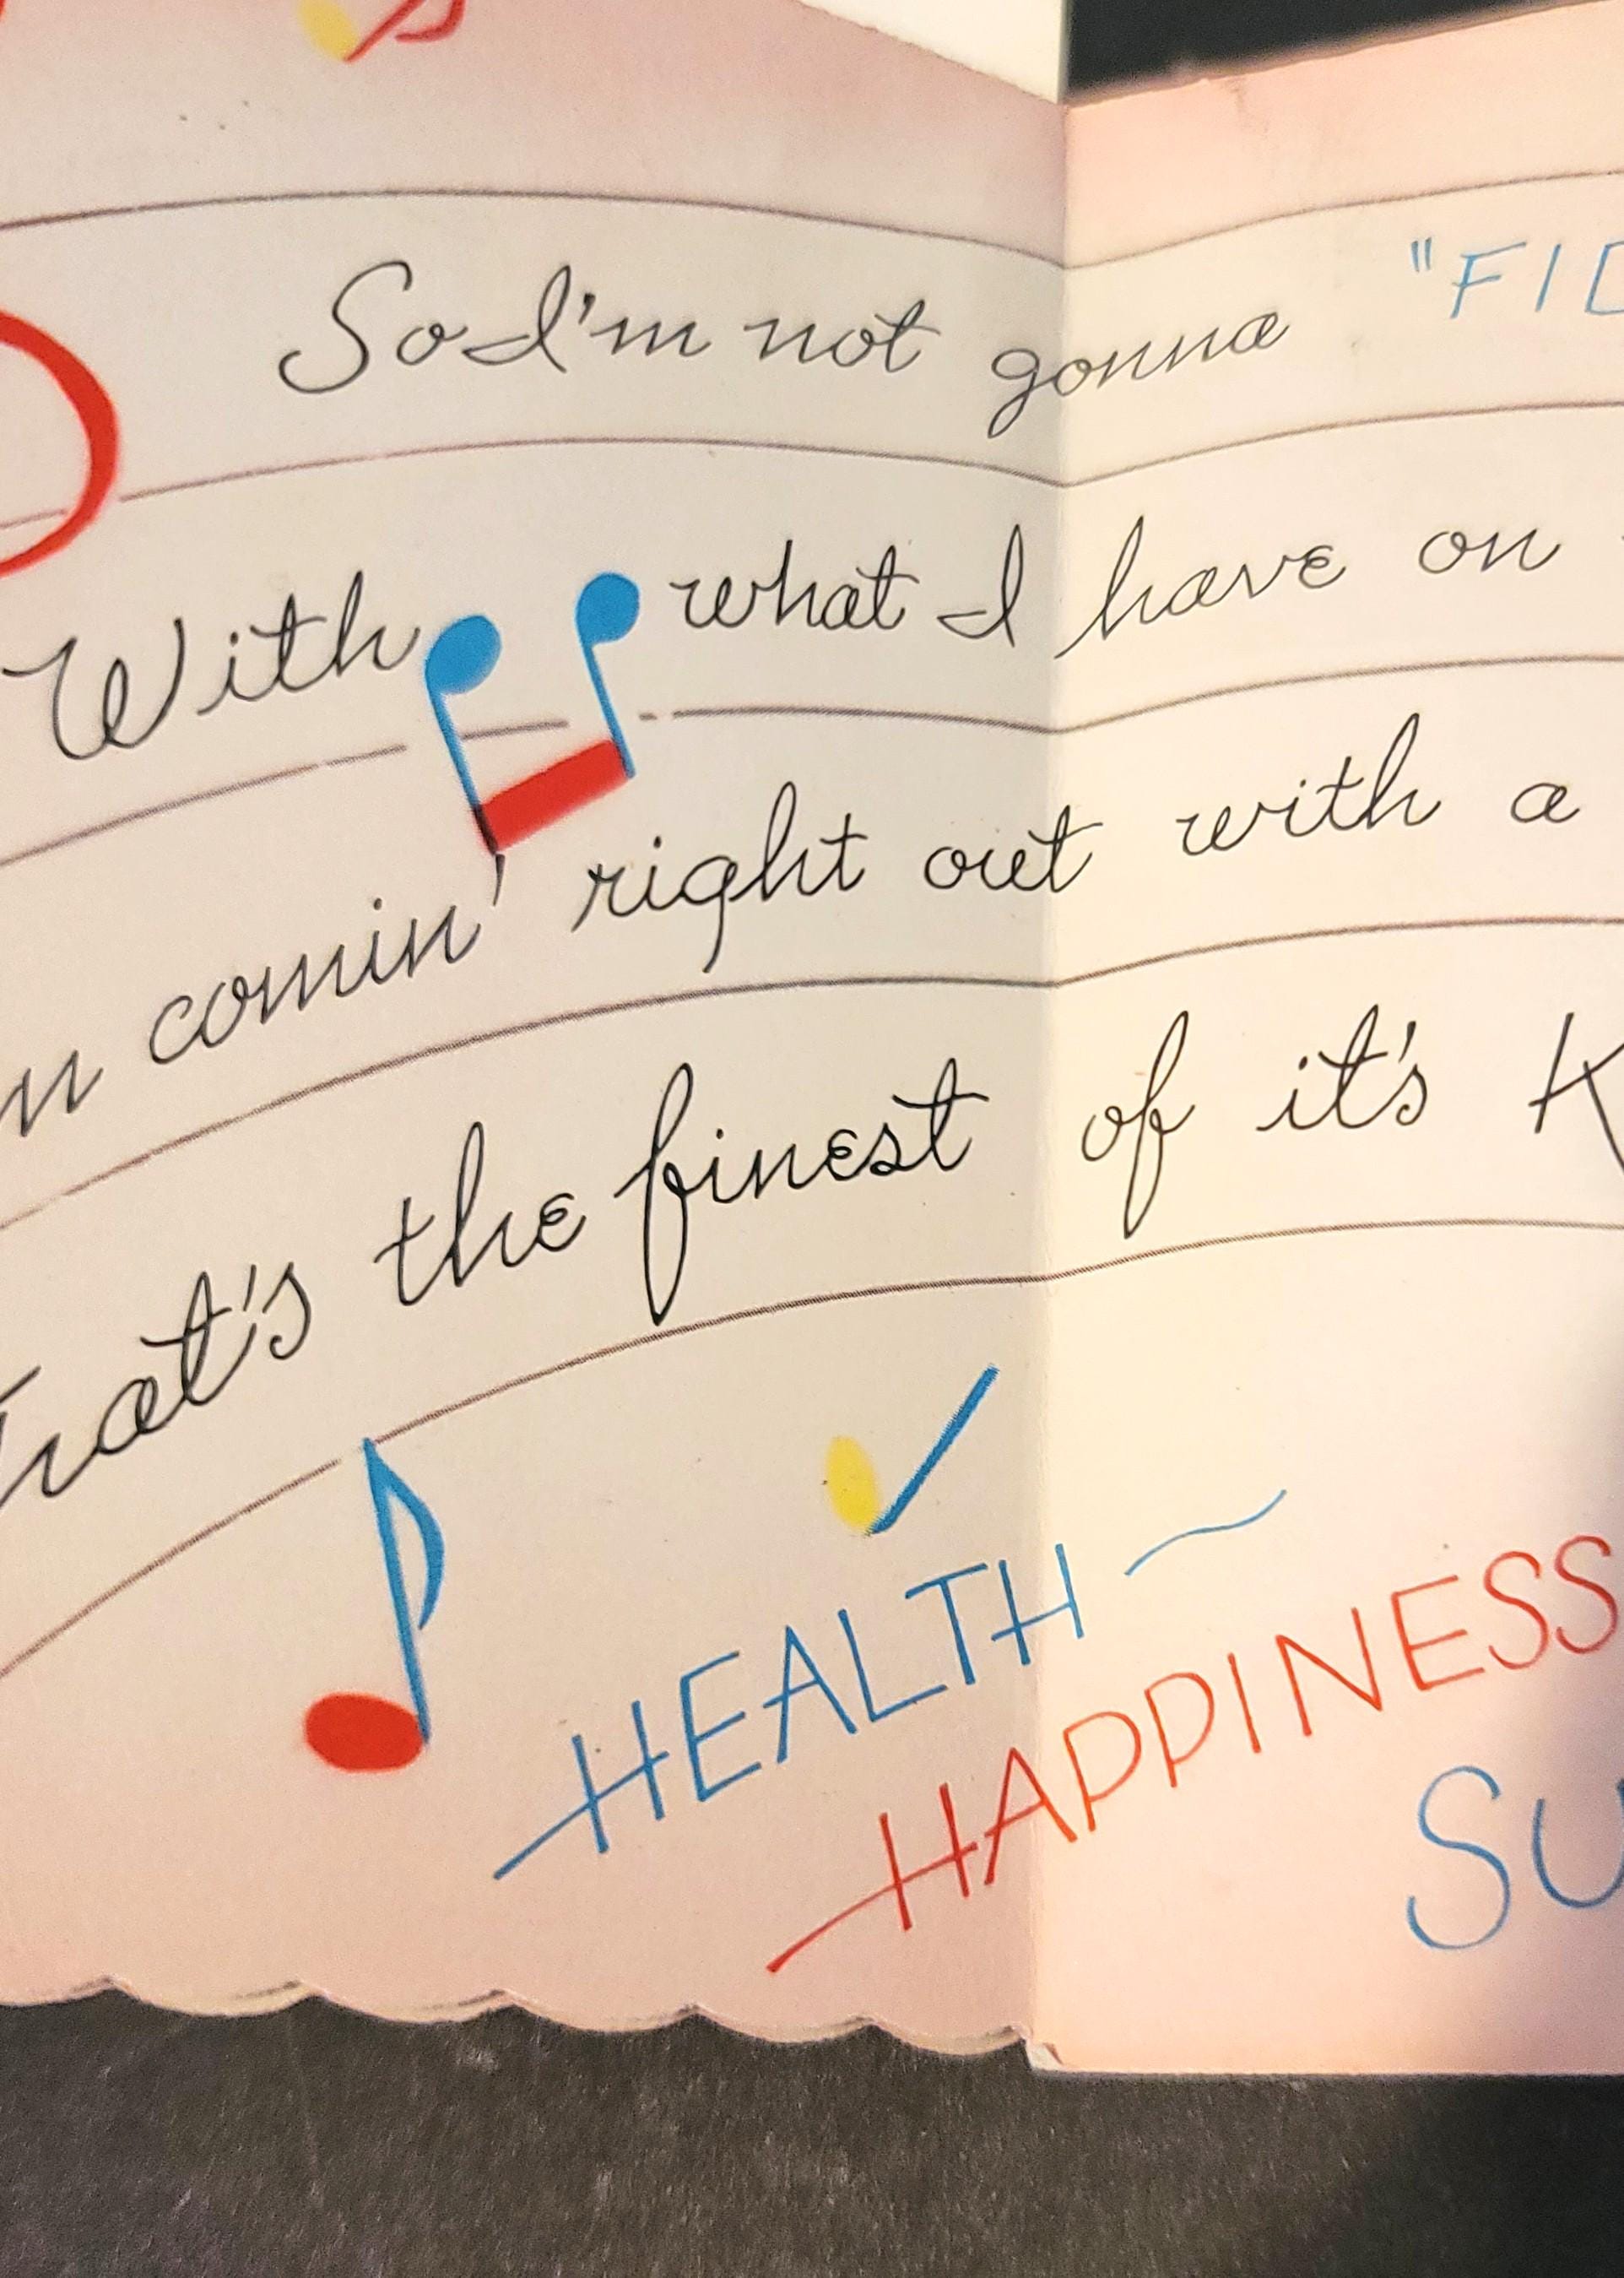 So I'm not gonna "FID
With what I have on
comin' right out with a
That's the finest of it's K
HEALTH ~
HAPPINESS
SU